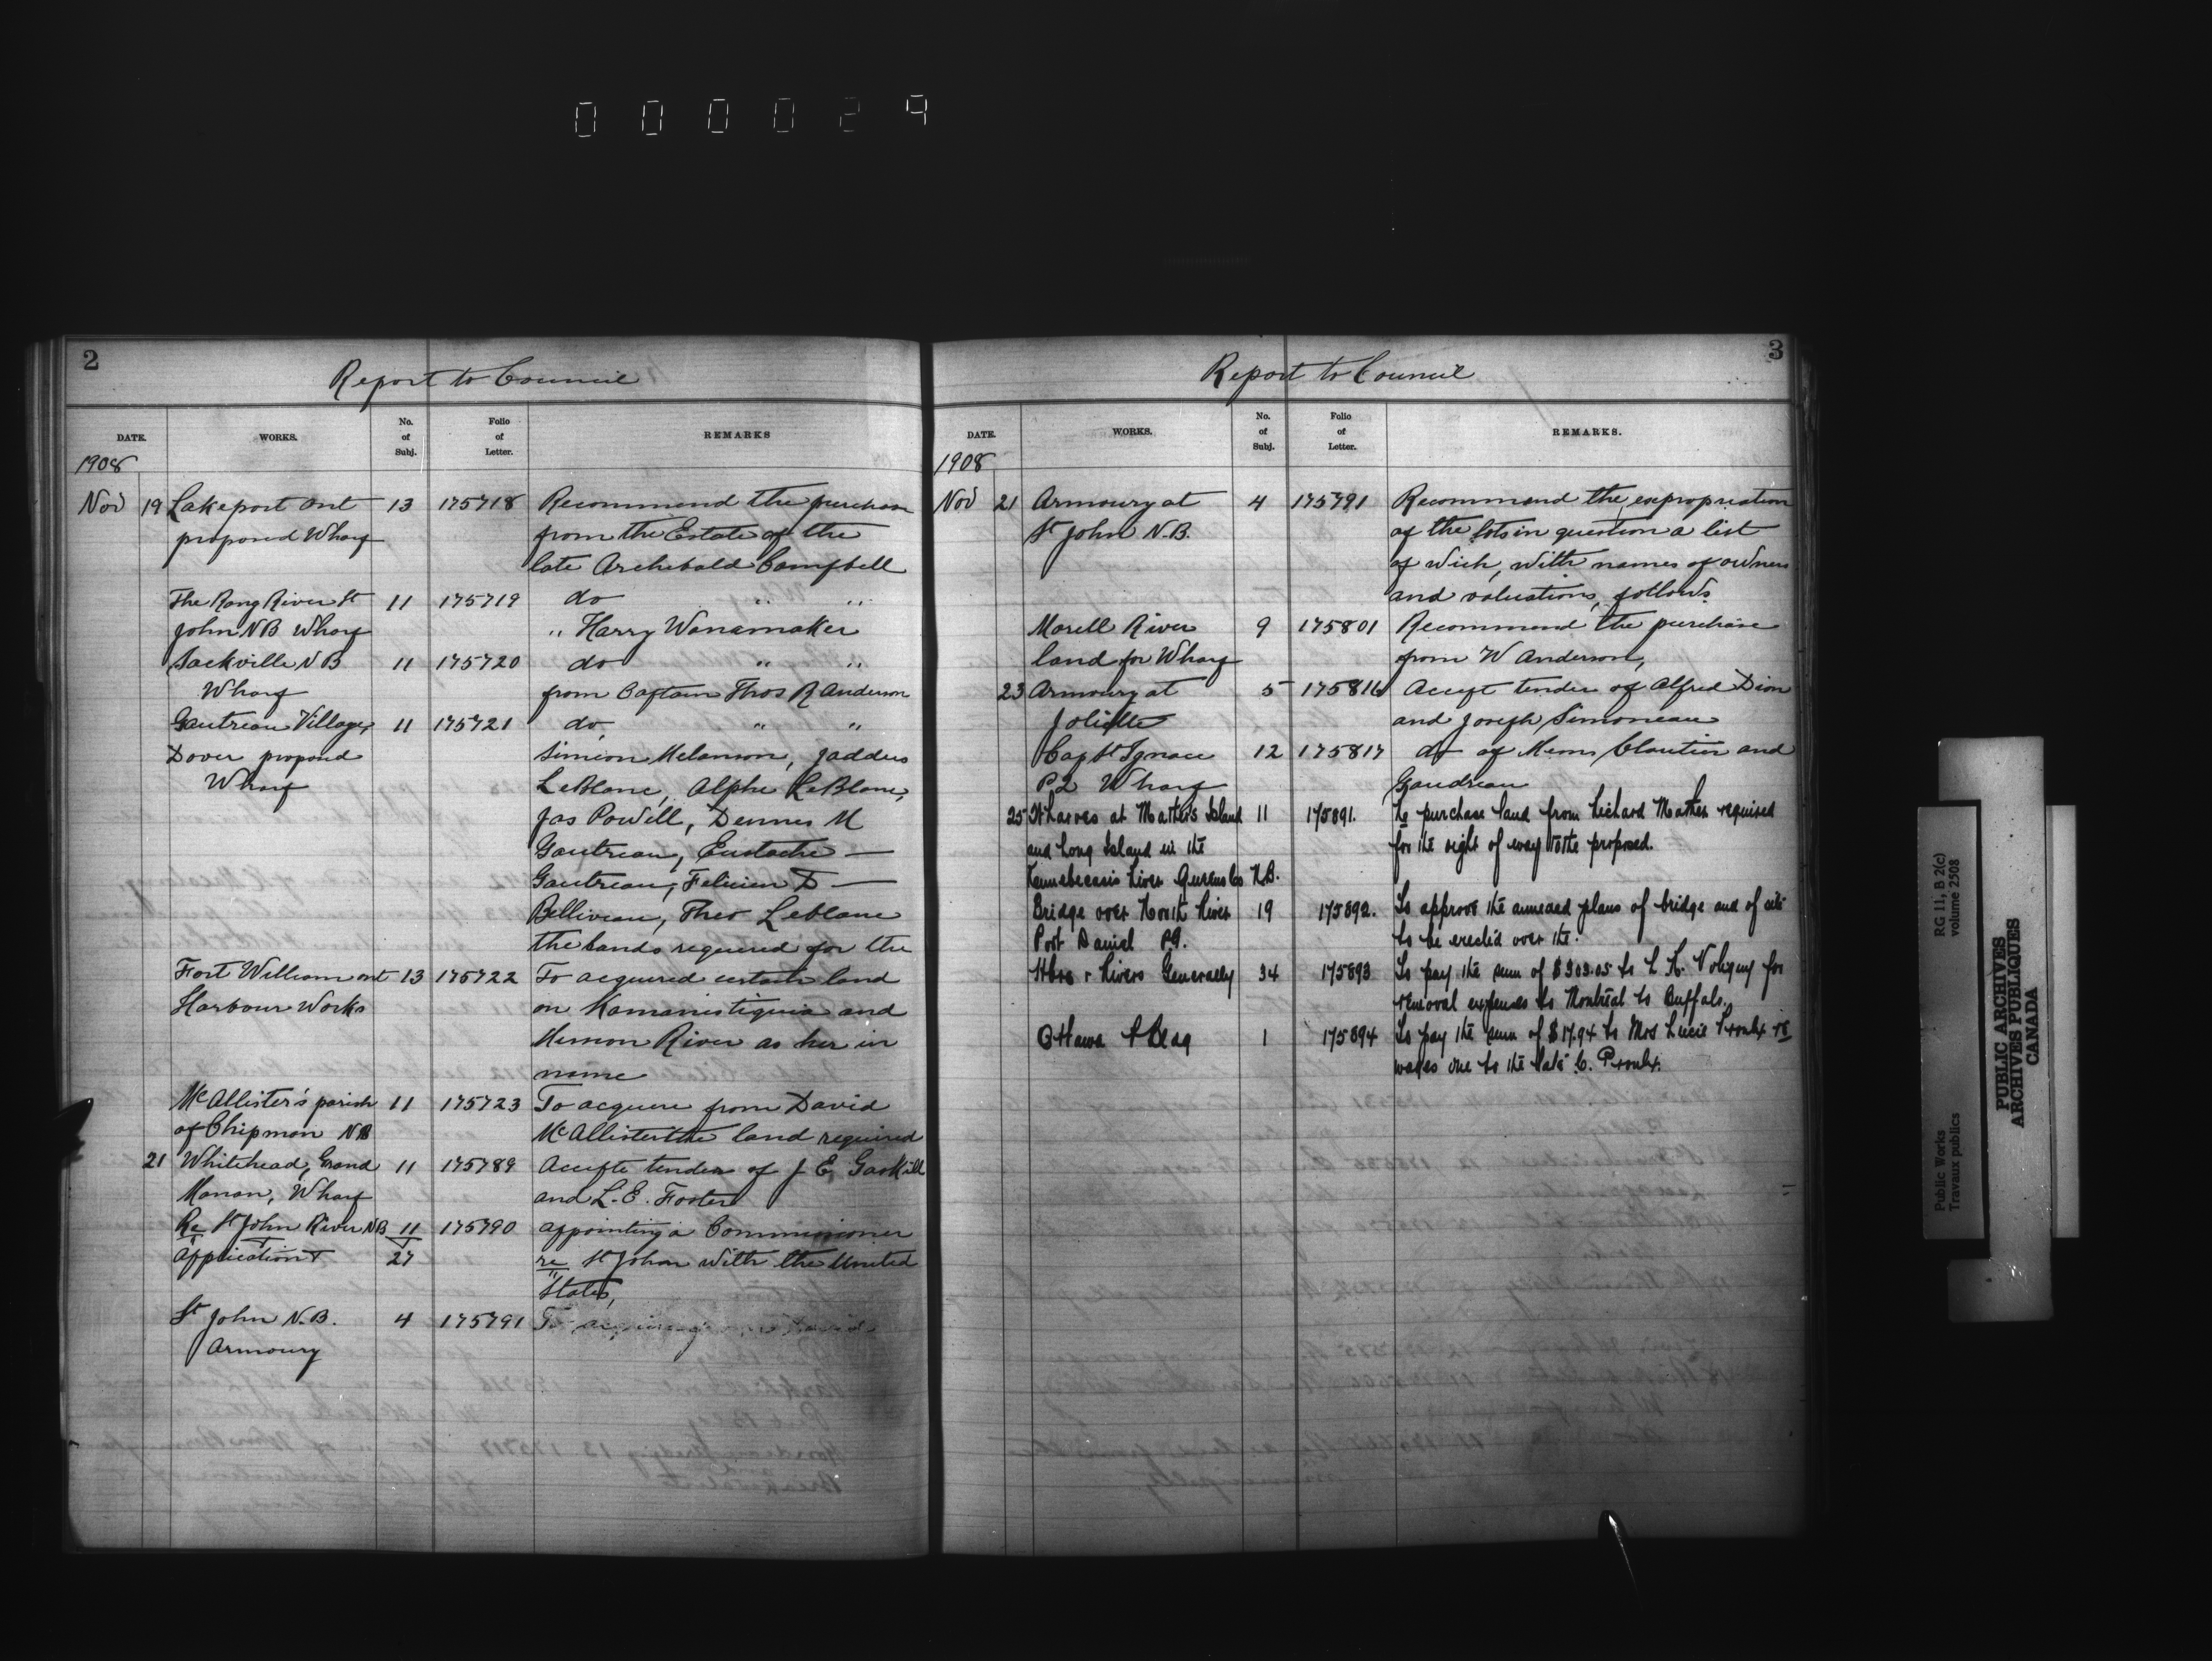 000029
2
Report to Council
DATE. WORKS. No. of Subj. Folio of Letter. REMARKS
1908
Nov 19 Lakeport Ont 13 175718 Recommend the purchase
proposed Wharf from the Estate of the
late Archebald Campbell
The Rang River St 11 175719 do " "
John NB Wharf " Harry Wanamaker
Sackville NB 11 175720 do " "
Wharf from Captain Thos R Anderson
Gautreau Village, 11 175721 do " "
Dover propond Simion Melanson, Jaddus
Wharf LeBlanc, Alphe LeBlanc,
Jas Powell, Dennis M
Gautreau, Eustache —
Gautreau, Felicien D —
Belliveau, Theo Leblanc
the lands required for the
Fort William ont 13 175722 To acquired certain land
Harbour Works on Kamanistiquia and
River as her in
name
McAllister's parish 11 175723 To acquire from David
of Chipman NB McAllister the land required
21 Whitehead, Grand 11 175789 Accepte tender of J E Gaskill
Manan, Wharf and L.E. Foster
Re St John River NB 11 175790 appointing a Commissioner
Application 27 re St John with the United
States,
St John N.B. 4 175791 To
Armoury
3
Report to Council
DATE. WORKS. No. of Subj. Folio of Letter. REMARKS.
1908
Nov 21 Armoury at 4 175791 Recommend the expropriation
St John N.B. of the lots in question a list
of wich, with names of owners
and valuations, follows
Morell River 9 175801 Recommend the purchase
land for Wharf from W Anderson,
23 Armoury at 5 175816 Accept tender of Alfred Dion
Joliette and Joseph Simoneau
Cap St Ignace 12 175817 do of Mems Cloutier and
P2 Wharf Gaudreau
25 Wharves at Mather's Island 11 175891. To purchase land from Richard Mather required
and Long Island in the for the right of way to the proposed.
Kennebecasis River Queens Co N.B.
Bridge over North River 19 175892. To approve the annexed plans of bridge and of site
Port Daniel P.Q. to be erected over the.
Hbrs & Rivers Generally 34 175893 To pay the sum of $303.05 to L. R. Voligny for
removal expenses to Montreal to Buffalo.
Ottawa P Bldg 1 175894 To pay the sum of $17.94 to Mrs Lucie Proulx re
wages due to the late C. Proulx.
Public Works RG 11, B 2(c)
Travaux publics volume 2508
PUBLIC ARCHIVES
ARCHIVES PUBLIQUES
CANADA